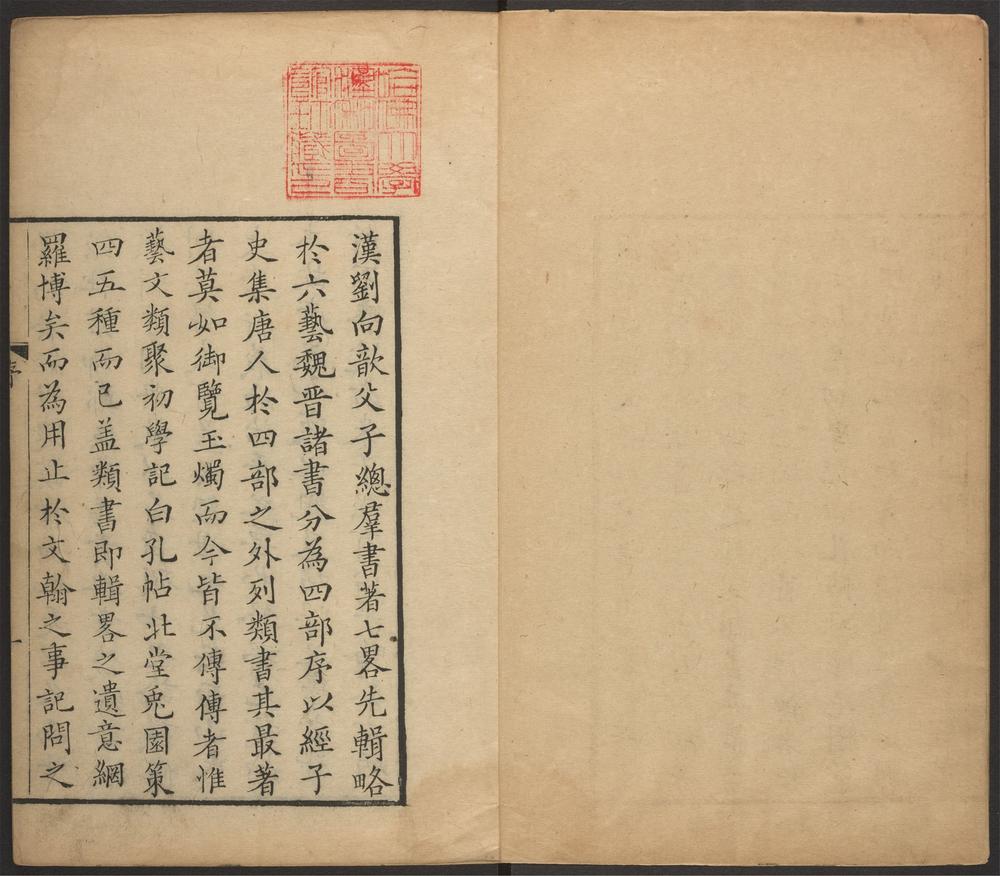 哈佛大學
漢和圖書
館珍藏印
漢劉向歆父子總羣書著七畧先輯略
於六藝魏晋諸書分為四部序以經子
史集唐人於四部之外列類書其最著
者莫如御覽玉燭而今皆不傳傳者惟
藝文類聚初學記白孔帖北堂兎園策
四五種而已盖類書即輯畧之遺意網
羅博矣而為用止於文翰之事記問之
序
一